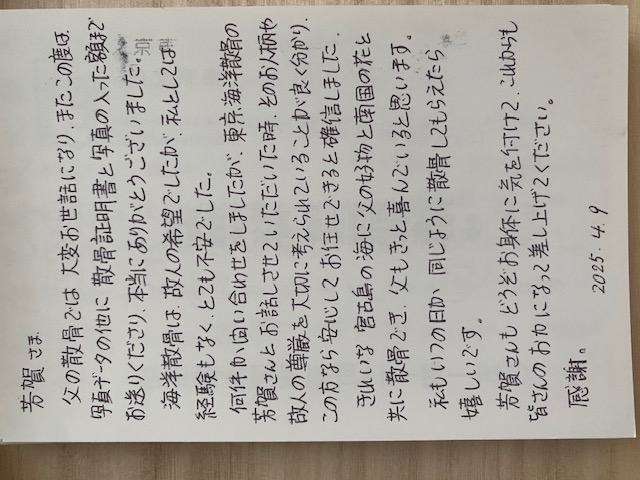 芳賀さま
父の散骨では 大変お世話になり、またこの度は、
写真データの他に 散骨証明書と写真の入った額まで
お送りくださり、本当にありがとうございました。
海洋散骨は、故人の希望でしたが、私としては
経験もなく、とても不安でした。
何件か問い合わせをしましたが、東京海洋散骨の
芳賀さんとお話しさせていただいた時、そのお人柄や
故人の尊厳を大切に考えられていることが良く分かり、
この方なら安心してお任せできると確信しました。
きれいな宮古島の海に父の好物と南国の花と
共に散骨でき、父もきっと喜んでいると思います。
私もいつの日か、同じように散骨してもらえたら
嬉しいです。
芳賀さんもどうぞお身体に気を付けて、これからも
皆さんのお力になって差し上げてください。
感謝。
2025.4.9